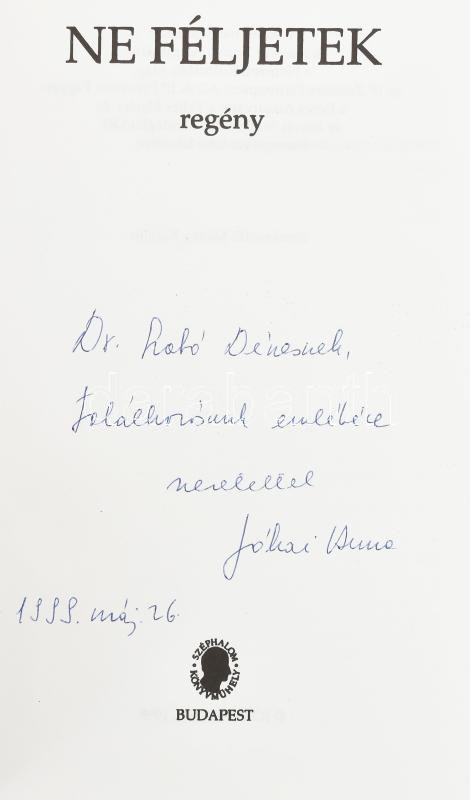 NE FÉLJETEK
regény
Dr. Szabó Dénesnek,
Találkozásunk emlékére
szeretettel
Jókai Anna
1999. máj. 26.
SZÉPHALOM KÖNYVMŰHELY
BUDAPEST